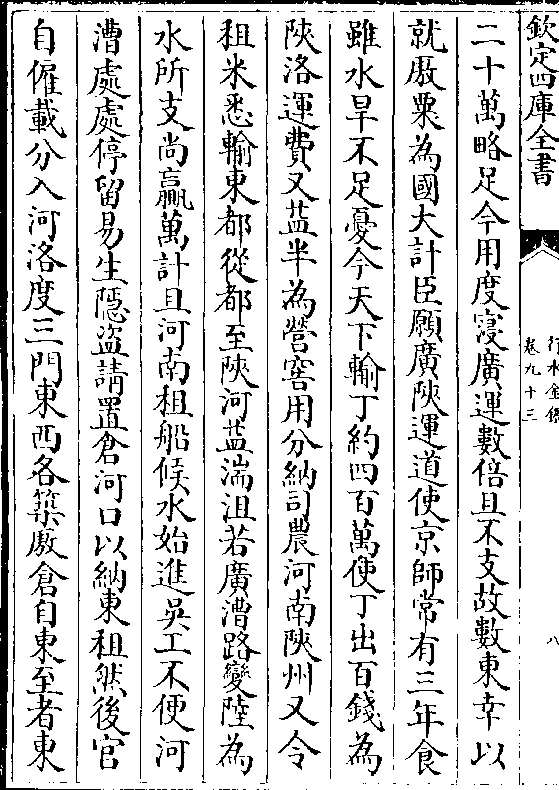 欽定四庫全書
行水金鑑
卷九十三
八
二十萬略足今用度寖廣運數倍且不支故數東幸以
就敖粟為國大計臣願廣陜運道使京師常有三年食
雖水旱不足憂今天下輸丁約四百萬使丁出百錢為
陜洛運費又益半為營窖用分納司農河南陜州又令
租米悉輸東都從都至陜河益湍沮若廣漕路變陸為
水所支尚贏萬計且河南租船候水始進吳工不便河
漕處處停留易生隱盜請置倉河口以納東租然後官
自僱載分入河洛度三門東西各築敖倉自東至者東